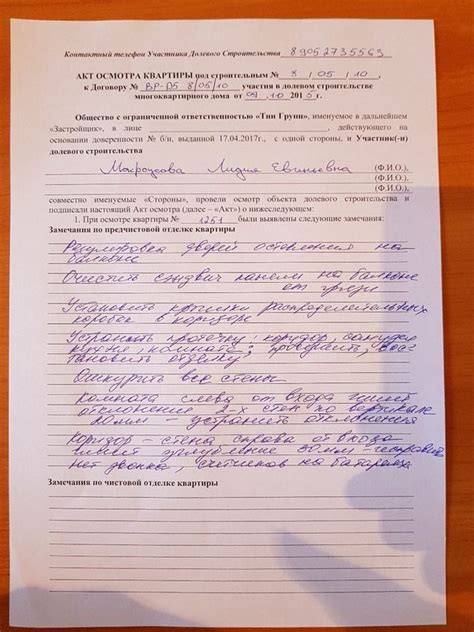 Контактный телефон Участника Долевого Строительства 89052735563
АКТ ОСМОТРА КВАРТИРЫ под строительным № 8 / 05 / 10 ,
к Договору № ВР-Д5 8/05/10 участия в долевом строительстве
многоквартирного дома от 09.10 2015г.
Общество с ограниченной ответственностью «Тин Групп», именуемое в дальнейшем
«Застройщик», в лице , действующего на
основании доверенности № б/н, выданной 17.04.2017г., с одной стороны, и Участник(-и)
долевого строительства
Лидия Евгеньевна (Ф.И.О.),
(Ф.И.О.),
(Ф.И.О.),
совместно именуемые «Стороны», провели осмотр объекта долевого строительства и
подписали настоящий Акт осмотра (далее – «Акт») о нижеследующем:
1. При осмотре квартиры № 1251 были выявлены следующие замечания:
Замечания по предчистовой отделке квартиры
Регулировка дверей остекления на
балконе
Очистить сэндвич панели на балконе
от грязи
Установить крышки распределительных
коробок в коридоре
Устранить протечку, коридор, санузел
кухня, комната; восс-
тановить отделку
Ошкурить все стены
Комната слева от входа имеет
отклонение 2-х стен по вертикали
20мм – устранить отклонения
Коридор – стена справа от входа
имеет углубление 30мм – исправить
нет звонка, счетчиков на батареях
Замечания по чистовой отделке квартиры